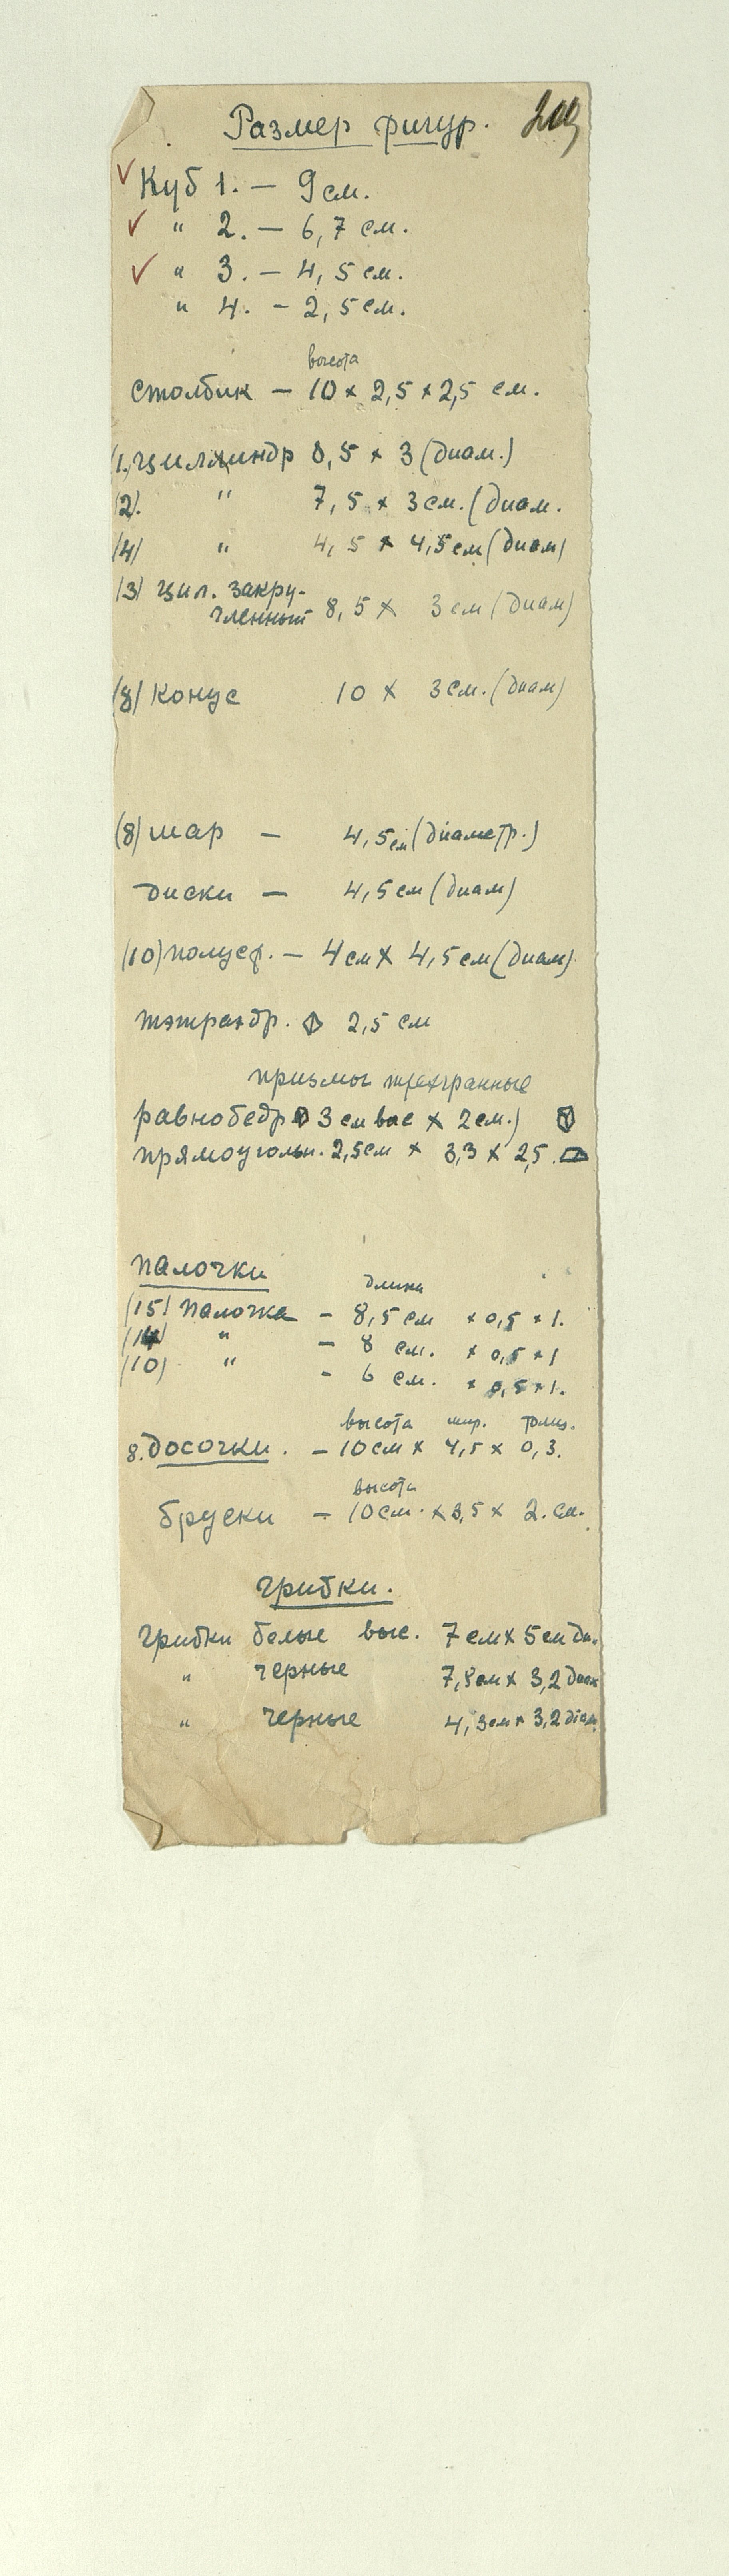 Размер фигур.
Куб 1. – 9 см.
" 2. – 6,7 см.
" 3. – 4,5 см.
" 4. – 2,5 см.
высота
столбик – 10 x 2,5 x 2,5 см.
(1.) цилиндр 8,5 x 3 (диам.)
(2). " 7,5 x 3 см. (диам.
(4) " 4,5 x 4,5 см (диам)
(3) цил. закру-
гленный 8,5 x 3 см (диам)
(8) Конус 10 x 3 см. (диам)
(8) шар – 4,5 см (диаметр.)
диски – 4,5 см (диам)
(10) полусф. – 4 см x 4,5 см (диам)
тэтраэдр. 2,5 см
призмы трехгранные
равнобедр 3 см выс x 2 см.)
прямоугольн. 2,5 см x 3,3 x 2,5.
палочки
длина
(15) палочка – 8,5 см x 0,5 x 1.
(14) " – 8 см. x 0,5 x 1
(10) " - 6 см. x 0,5 x 1.
высота шир. толщ.
8. досочки. – 10 см x 4,5 x 0,3.
высота
бруски – 10 см. x 3,5 x 2. см.
грибки.
грибки белые выс. 7 см x 5 см ди.
" черные 7,5 см x 3,2 диам
" черные 4,3 см x 3,2 диам.